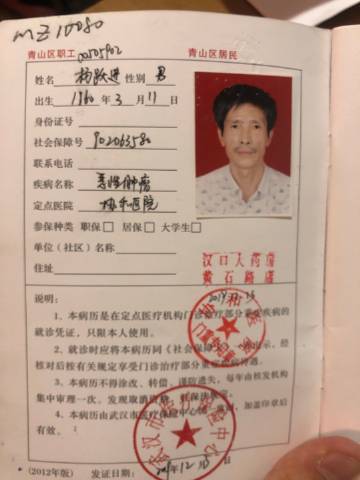 MZ10080
青山区职工 00505902 青山区居民
姓名 杨跃进 性别 男
出生 1960 年 3 月 11 日
身份证号
社会保障号 902063580
联系电话
疾病名称 恶性肿瘤
定点医院 协和医院
参保种类 职保□ 居保□ 大学生□
单位(社区)名称
住址
汉口大药房
黄石路店
说明:
1、本病历是在定点医疗机构门诊治疗部分重症疾病的
就诊凭证,只限本人使用。
2、就诊时应将本病历同《社会保障
示,经
核对后按有关规定享受门诊治疗部分重症疾病待遇。
3、本病历不得涂改、转借,谨防遗失,每年由核发机构
集中审理一次,发现取消
4、本病历由武汉市医疗保险中心统
加盖印章后
有效。
(2012年版) 发证日期:
年 12 月
日